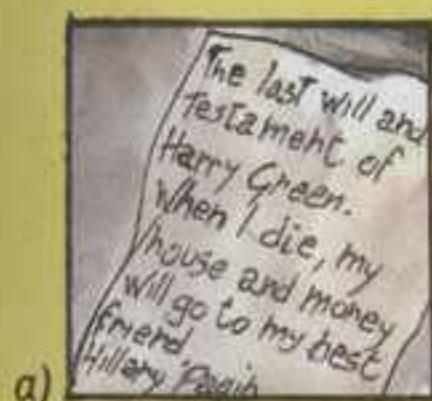 The last will and
Testament of
Harry Green.
When I die, my
house and money
will go to my best
friend
Hillary
a)